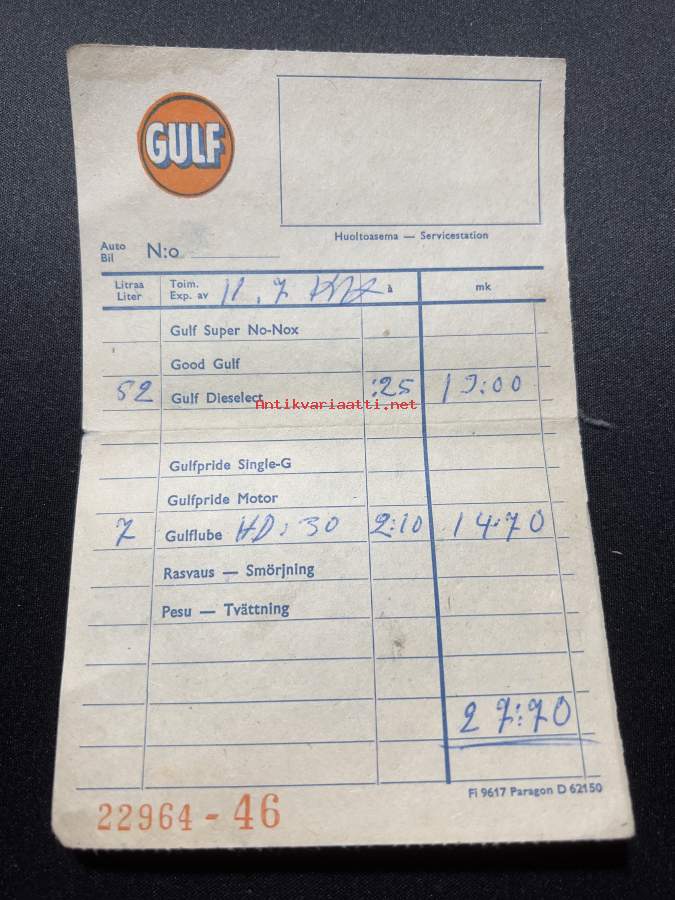 GULF
Huoltoasema — Servicestation
Auto
Bil
N:o
Litraa
Liter
Toim.
Exp. av
11.7
à
mk
Gulf Super No-Nox
Good Gulf
52 Gulf Dieselect :25 13:00
Antikvariaatti.net
Gulfpride Single-G
Gulfpride Motor
7 Gulflube HD: 30 2:10 14:70
Rasvaus — Smörjning
Pesu — Tvättning
27:70
22964 - 46
Fi 9617 Paragon D 62150